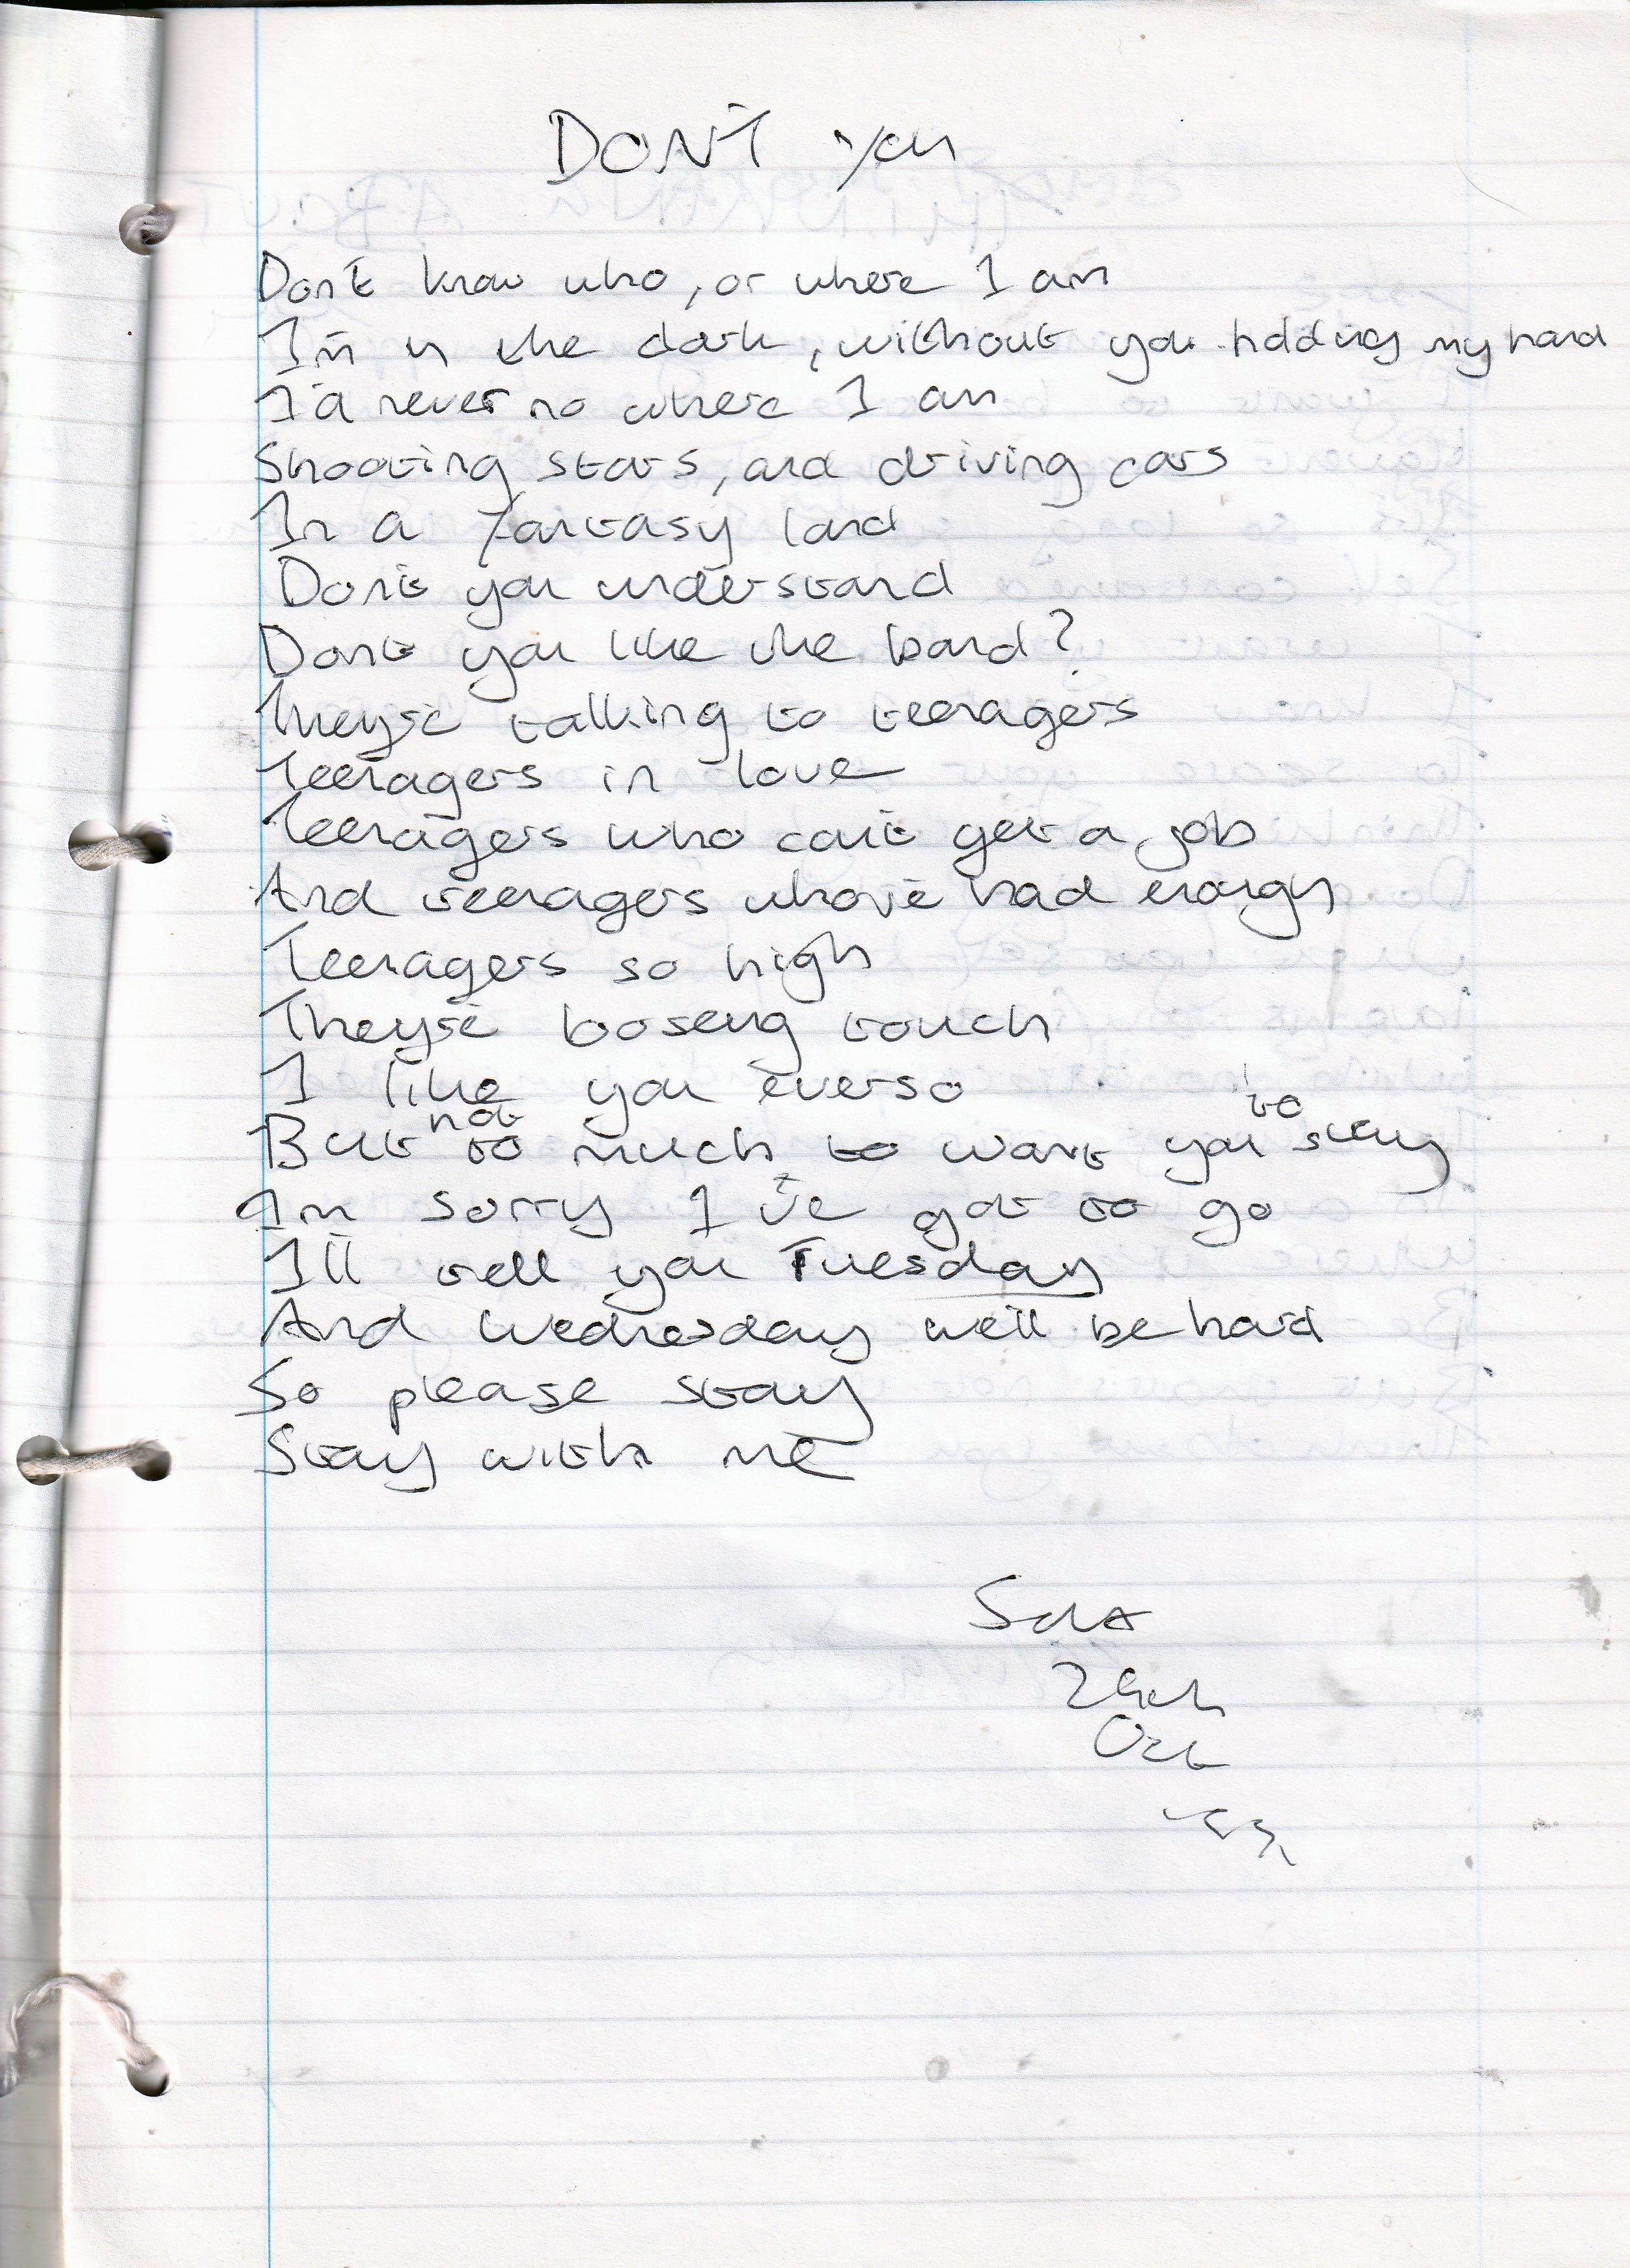 DON'T you
Don't know who, or where I am
I'm in the dark, without you holding my hand
I'd never no where I am
Shooting stars, and driving cars
In a fantasy land
Don't you understand
Dont you like the band?
They're talking to teenagers
Teenagers in love
Teenagers who can't get a job
And teenagers who've had enough
Teenagers so high
They're looseng touch
I like you everso
But not to much to want you to stay
I'm sorry I've got to go
I'll tell you Tuesday
And Wednesday we'll be hard
So please stay
Stay with me
29th
Oct